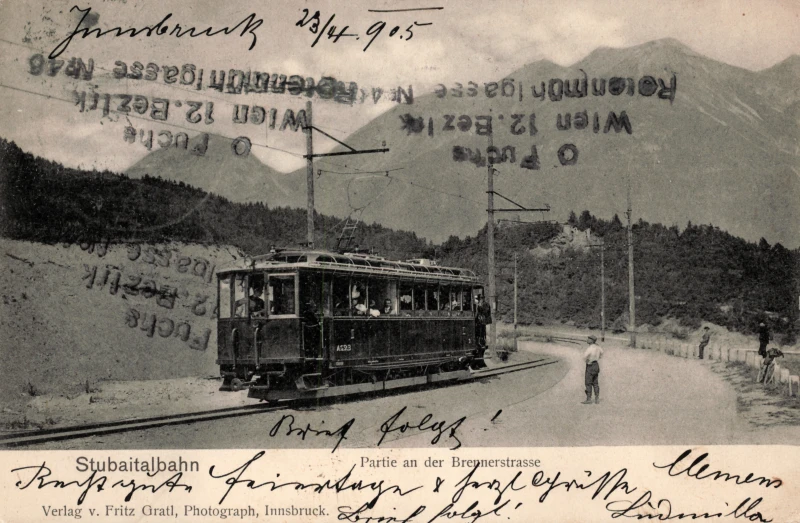 Innsbruck 23/4. 905
Rotenmühlgasse № 40
Wien 12. Bezirk
O Fuchs
Rotenmühlgasse № 4
Wien 12. Bezirk
O Fuchs
gasse №
12. Bezirk
Fuchs
I
Brief folgt!
Stubaitalbahn Partie an der Brennerstrasse
Recht gute Feiertage & herzl Grüsse Clemens
Verlag v. Fritz Gratl, Photograph, Innsbruck. Brief folgt! Ludmilla